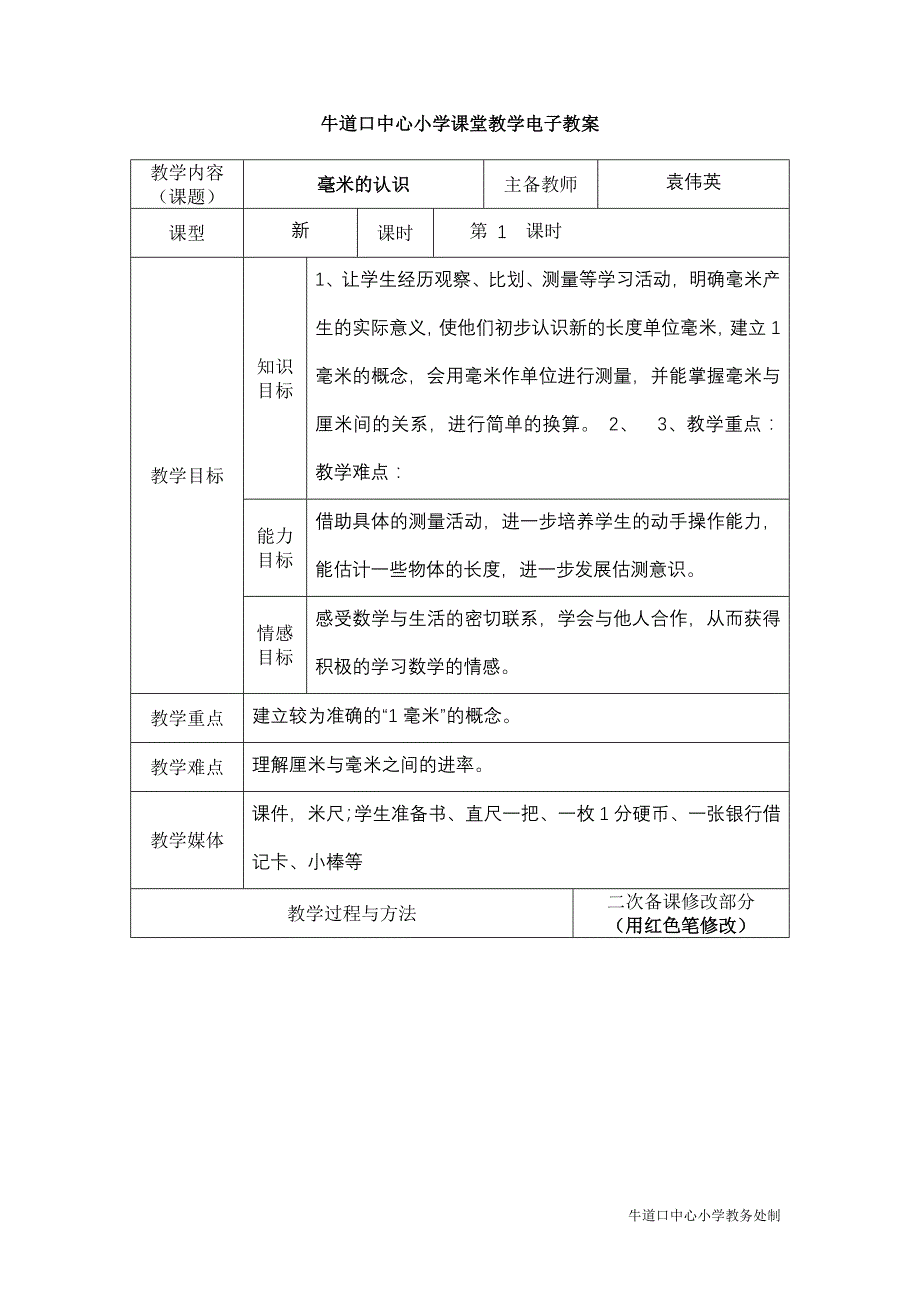 牛道口中心小学课堂教学电子教案
教学内容
（课题）
毫米的认识
主备教师
袁伟英
课型
新
课时
第 1 课时
教学目标
知识
目标
1、让学生经历观察、比划、测量等学习活动，明确毫米产
生的实际意义，使他们初步认识新的长度单位毫米，建立 1
毫米的概念，会用毫米作单位进行测量，并能掌握毫米与
厘米间的关系，进行简单的换算。 2、 3、教学重点：
教学难点：
能力
目标
借助具体的测量活动，进一步培养学生的动手操作能力，
能估计一些物体的长度，进一步发展估测意识。
情感
目标
感受数学与生活的密切联系，学会与他人合作，从而获得
积极的学习数学的情感。
教学重点
建立较为准确的“1 毫米”的概念。
教学难点
理解厘米与毫米之间的进率。
教学媒体
课件，米尺；学生准备书、直尺一把、一枚 1 分硬币、一张银行借
记卡、小棒等
教学过程与方法
二次备课修改部分
（用红色笔修改）
牛道口中心小学教务处制